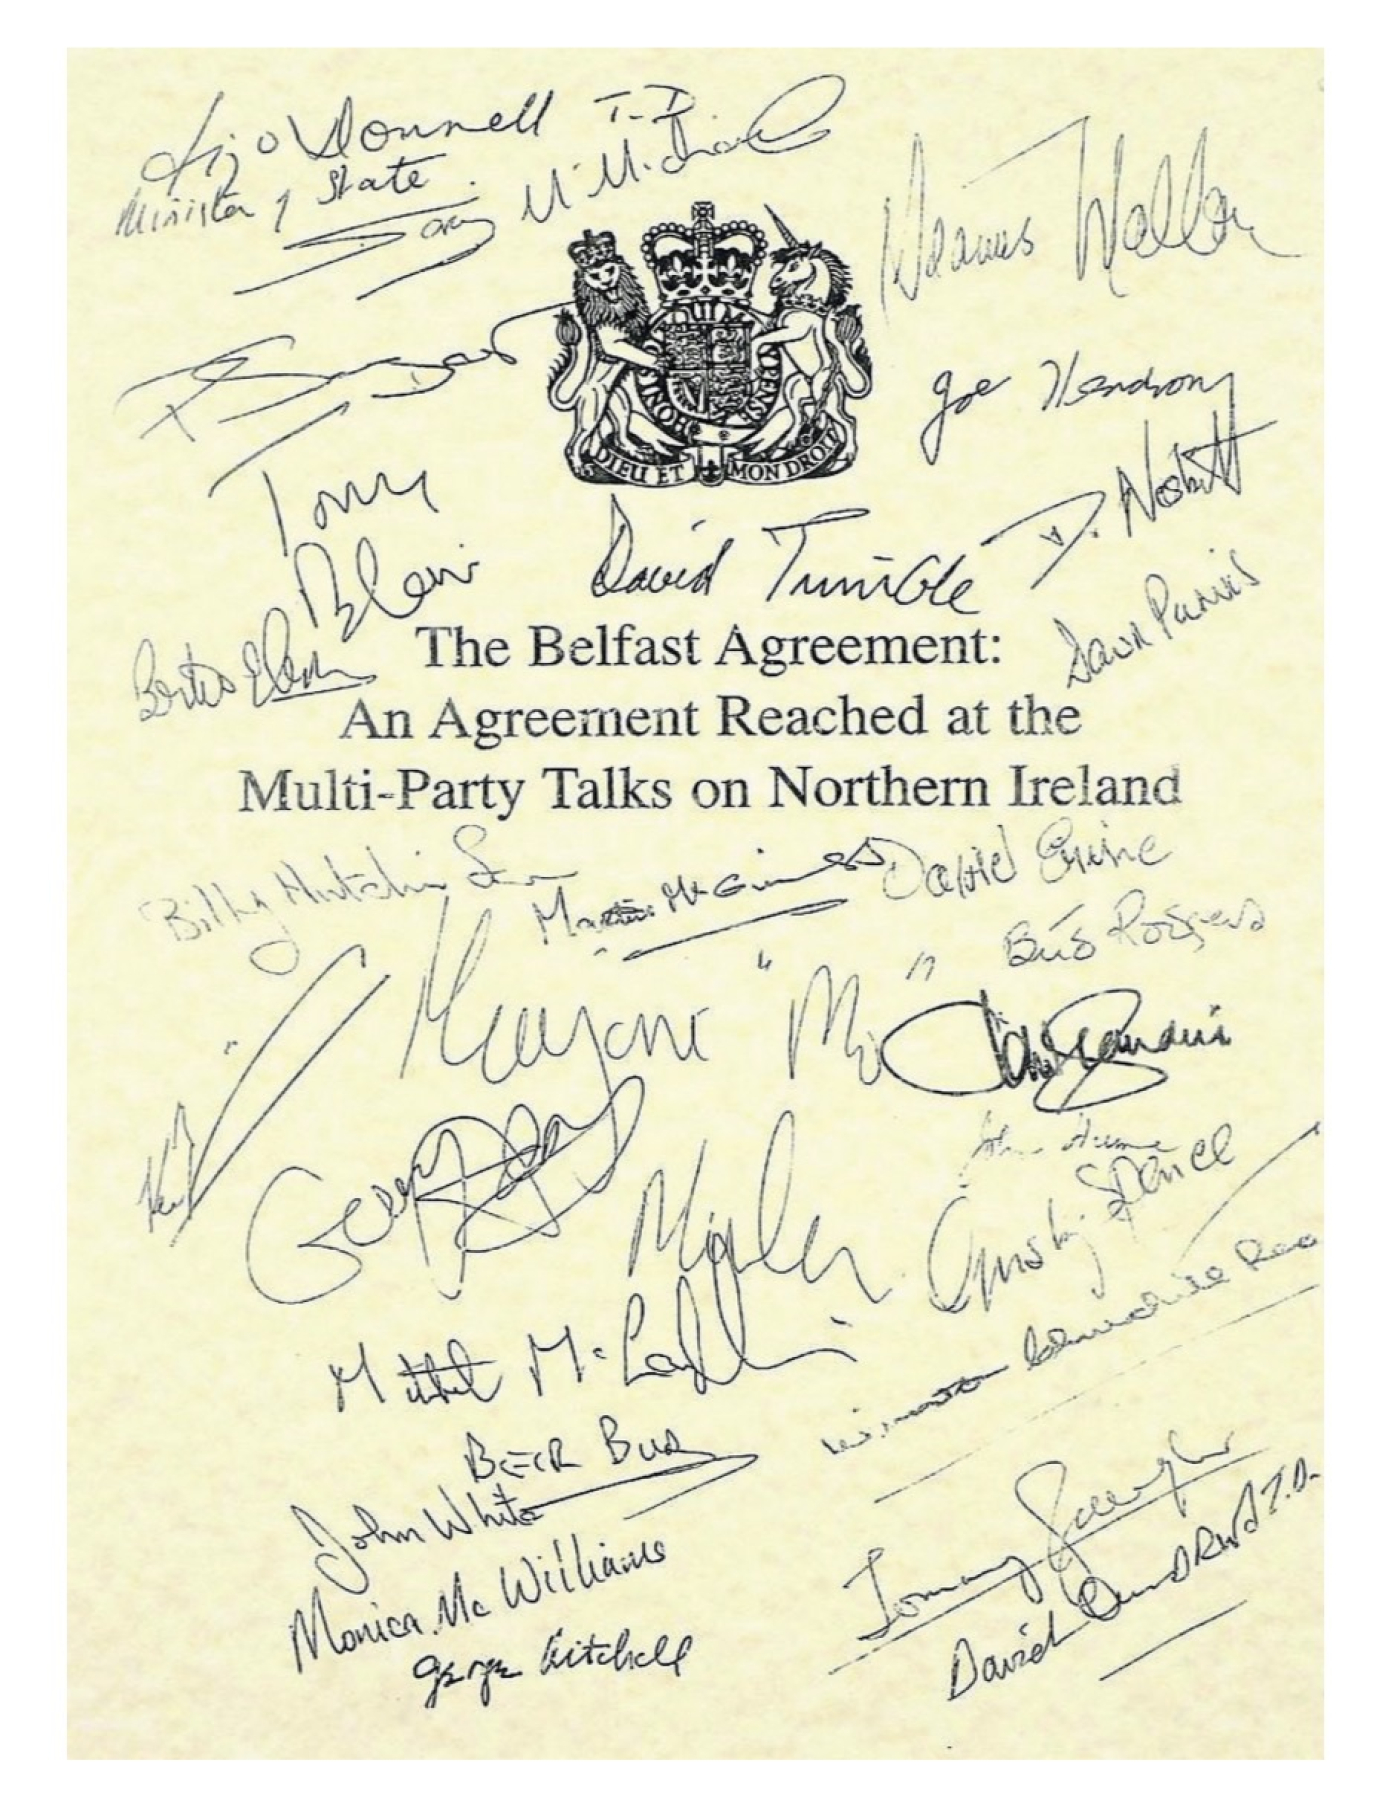 Liz O'Donnell T.D.
Minister of State
Gary McMichael
Séamus Mallon
HONI SOIT QUI MAL Y PENSE
Joe Hendron
DIEU ET MON DROIT
D. Nesbitt
Tony
Blair
David Trimble
Dawn Purvis
Bertie Ahern
The Belfast Agreement:
An Agreement Reached at the
Multi-Party Talks on Northern Ireland
Billy Hutchinson
Martin McGuinness
David Ervine
Bríd Rodgers
Marjorie "Mo"
John Hume
Gerry Adams
Gusty Spence
Mitchel McLaughlin
John White
Monica McWilliams
George Mitchell
Tommy Gallagher
David Andrews T.D.